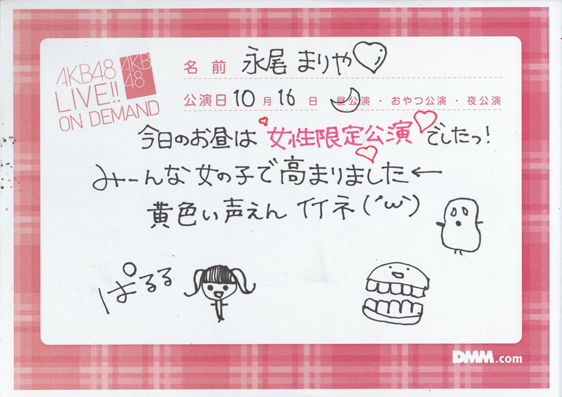 AKB48
LIVE!!
ON DEMAND
AKB
48
名前 永尾 まりや
公演日 10月16日 昼公演・おやつ公演・夜公演
今日のお昼は 女性限定公演 でしたっ!
みーんな女の子で高まりました←
黄色い声えん イイネ('ω')
ぱるる
DMM.com